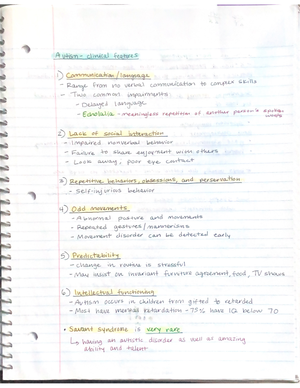 Autism - clinical features
1) Communication/language
- Range from no verbal communication to complex skills
- Two common impairments:
- Delayed language
- Echolalia - meaningless repetition of another person's spoken words
2) Lack of social interaction
- Impaired nonverbal behavior
- Failure to share enjoyment with others
- Look away, poor eye contact
3) Repetitive behaviors, obsessions, and perseveration
- Self-injurious behavior
4) Odd movements
- Abnormal posture and movements
- Repeated gestures/mannerisms
- Movement disorder can be detected early
5) Predictability
- change in routine is stressful
- May insist on invariant furniture agreement, food, TV shows
6) Intellectual functioning
- Autism occurs in children from gifted to retarded
- Most have mental retardation - 75% have IQ below 70
• Savant syndrome is very rare
↳ having an autistic disorder as well as amazing
ability and talent